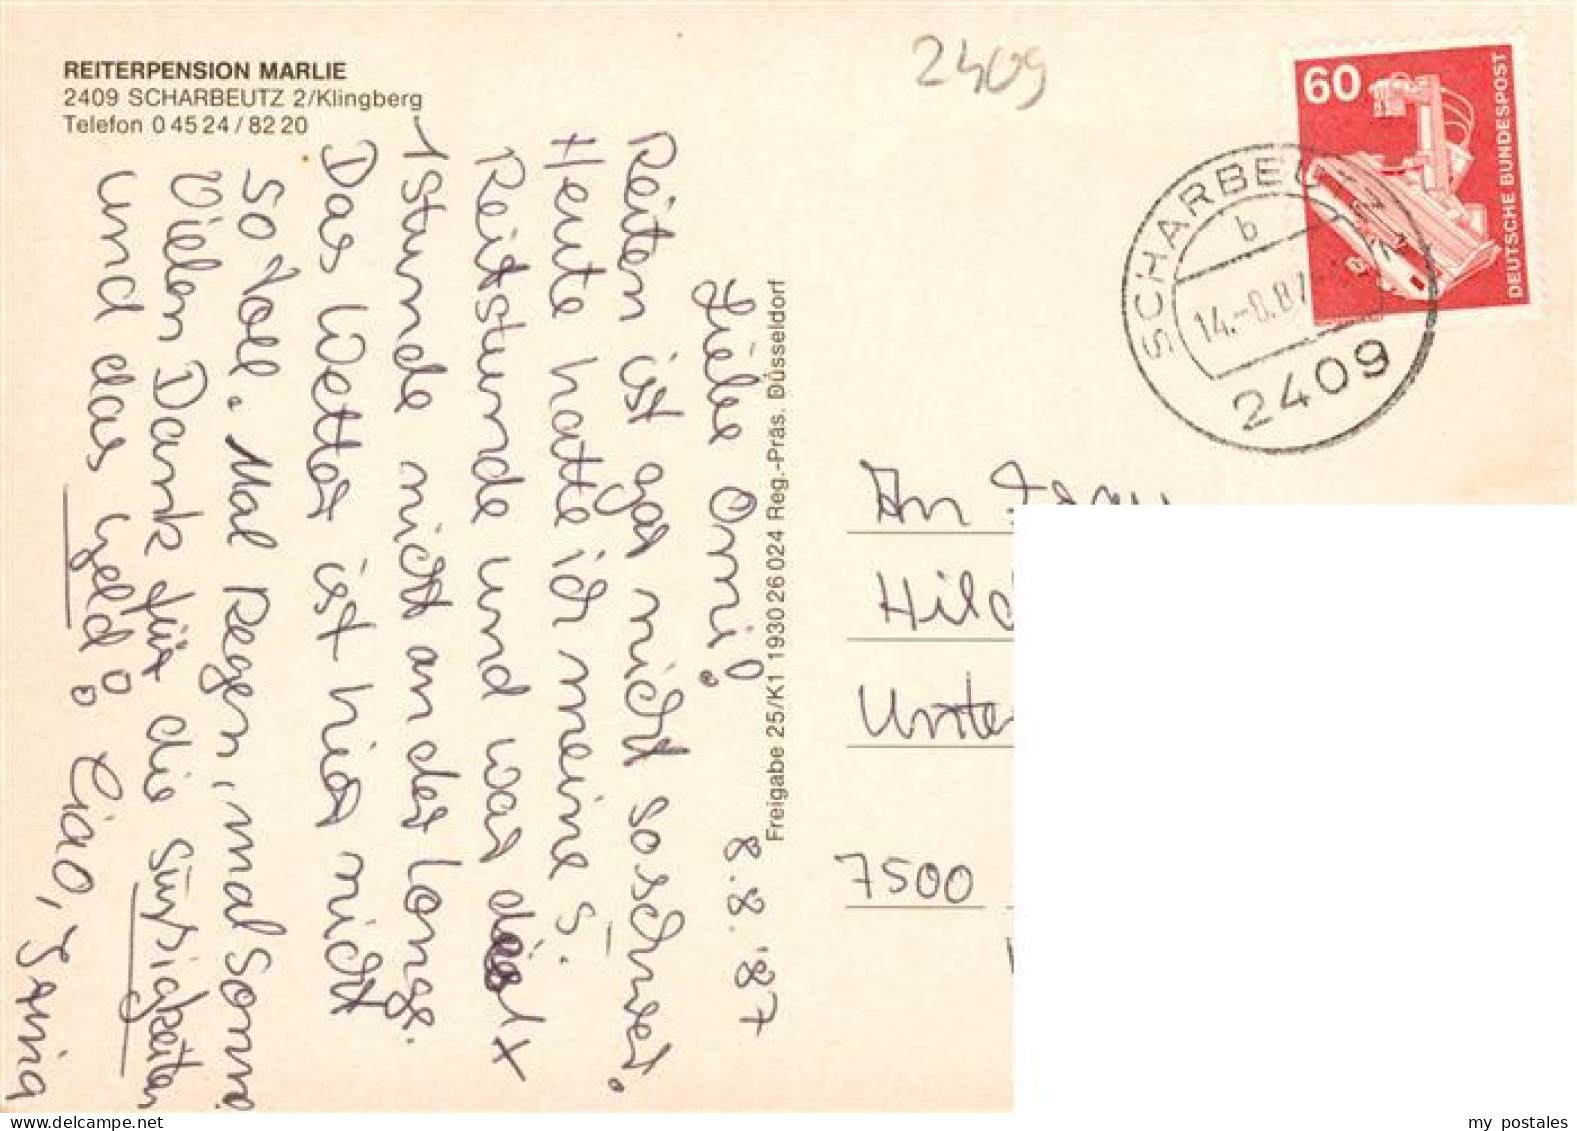 REITERPENSION MARLIE
2409 SCHARBEUTZ 2/Klingberg
Telefon 0 45 24 / 82 20
2409
60
DEUTSCHE BUNDESPOST
SCHARBEUTZ 2
b
14.-8.87
2409
8.8.'87
Liebe Omi!
Reiten ist gar nicht so schwer.
Heute hatte ich meine 5.
Reitstunde und war die 1x
1 Stunde nicht an der Longe.
Das Wetter ist hier nicht
so toll. Mal Regen, mal Sonne.
Vielen Dank für die Süßigkeiten
und das Geld!
Ciao,
Freigabe 25/K1 1930 26 024 Reg.-Präs. Düsseldorf
An
7500
my postales